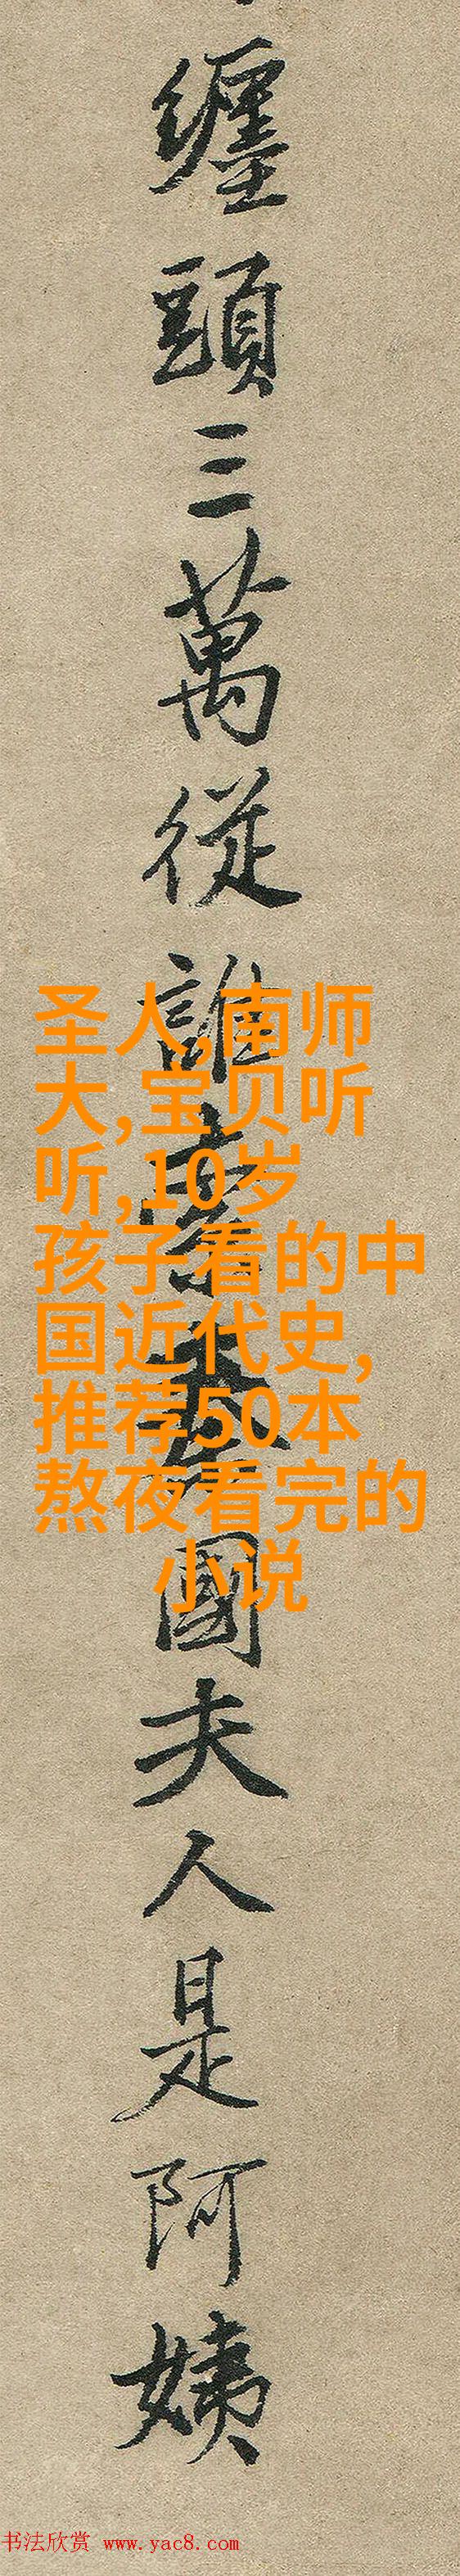 纏頭三萬從誰索秦國夫人是阿姨
圣人,南师
大,宝贝听
听,10岁
孩子看的中
国近代史,
推荐50本
熬夜看完的
小说
书法欣赏 www.yac8.com